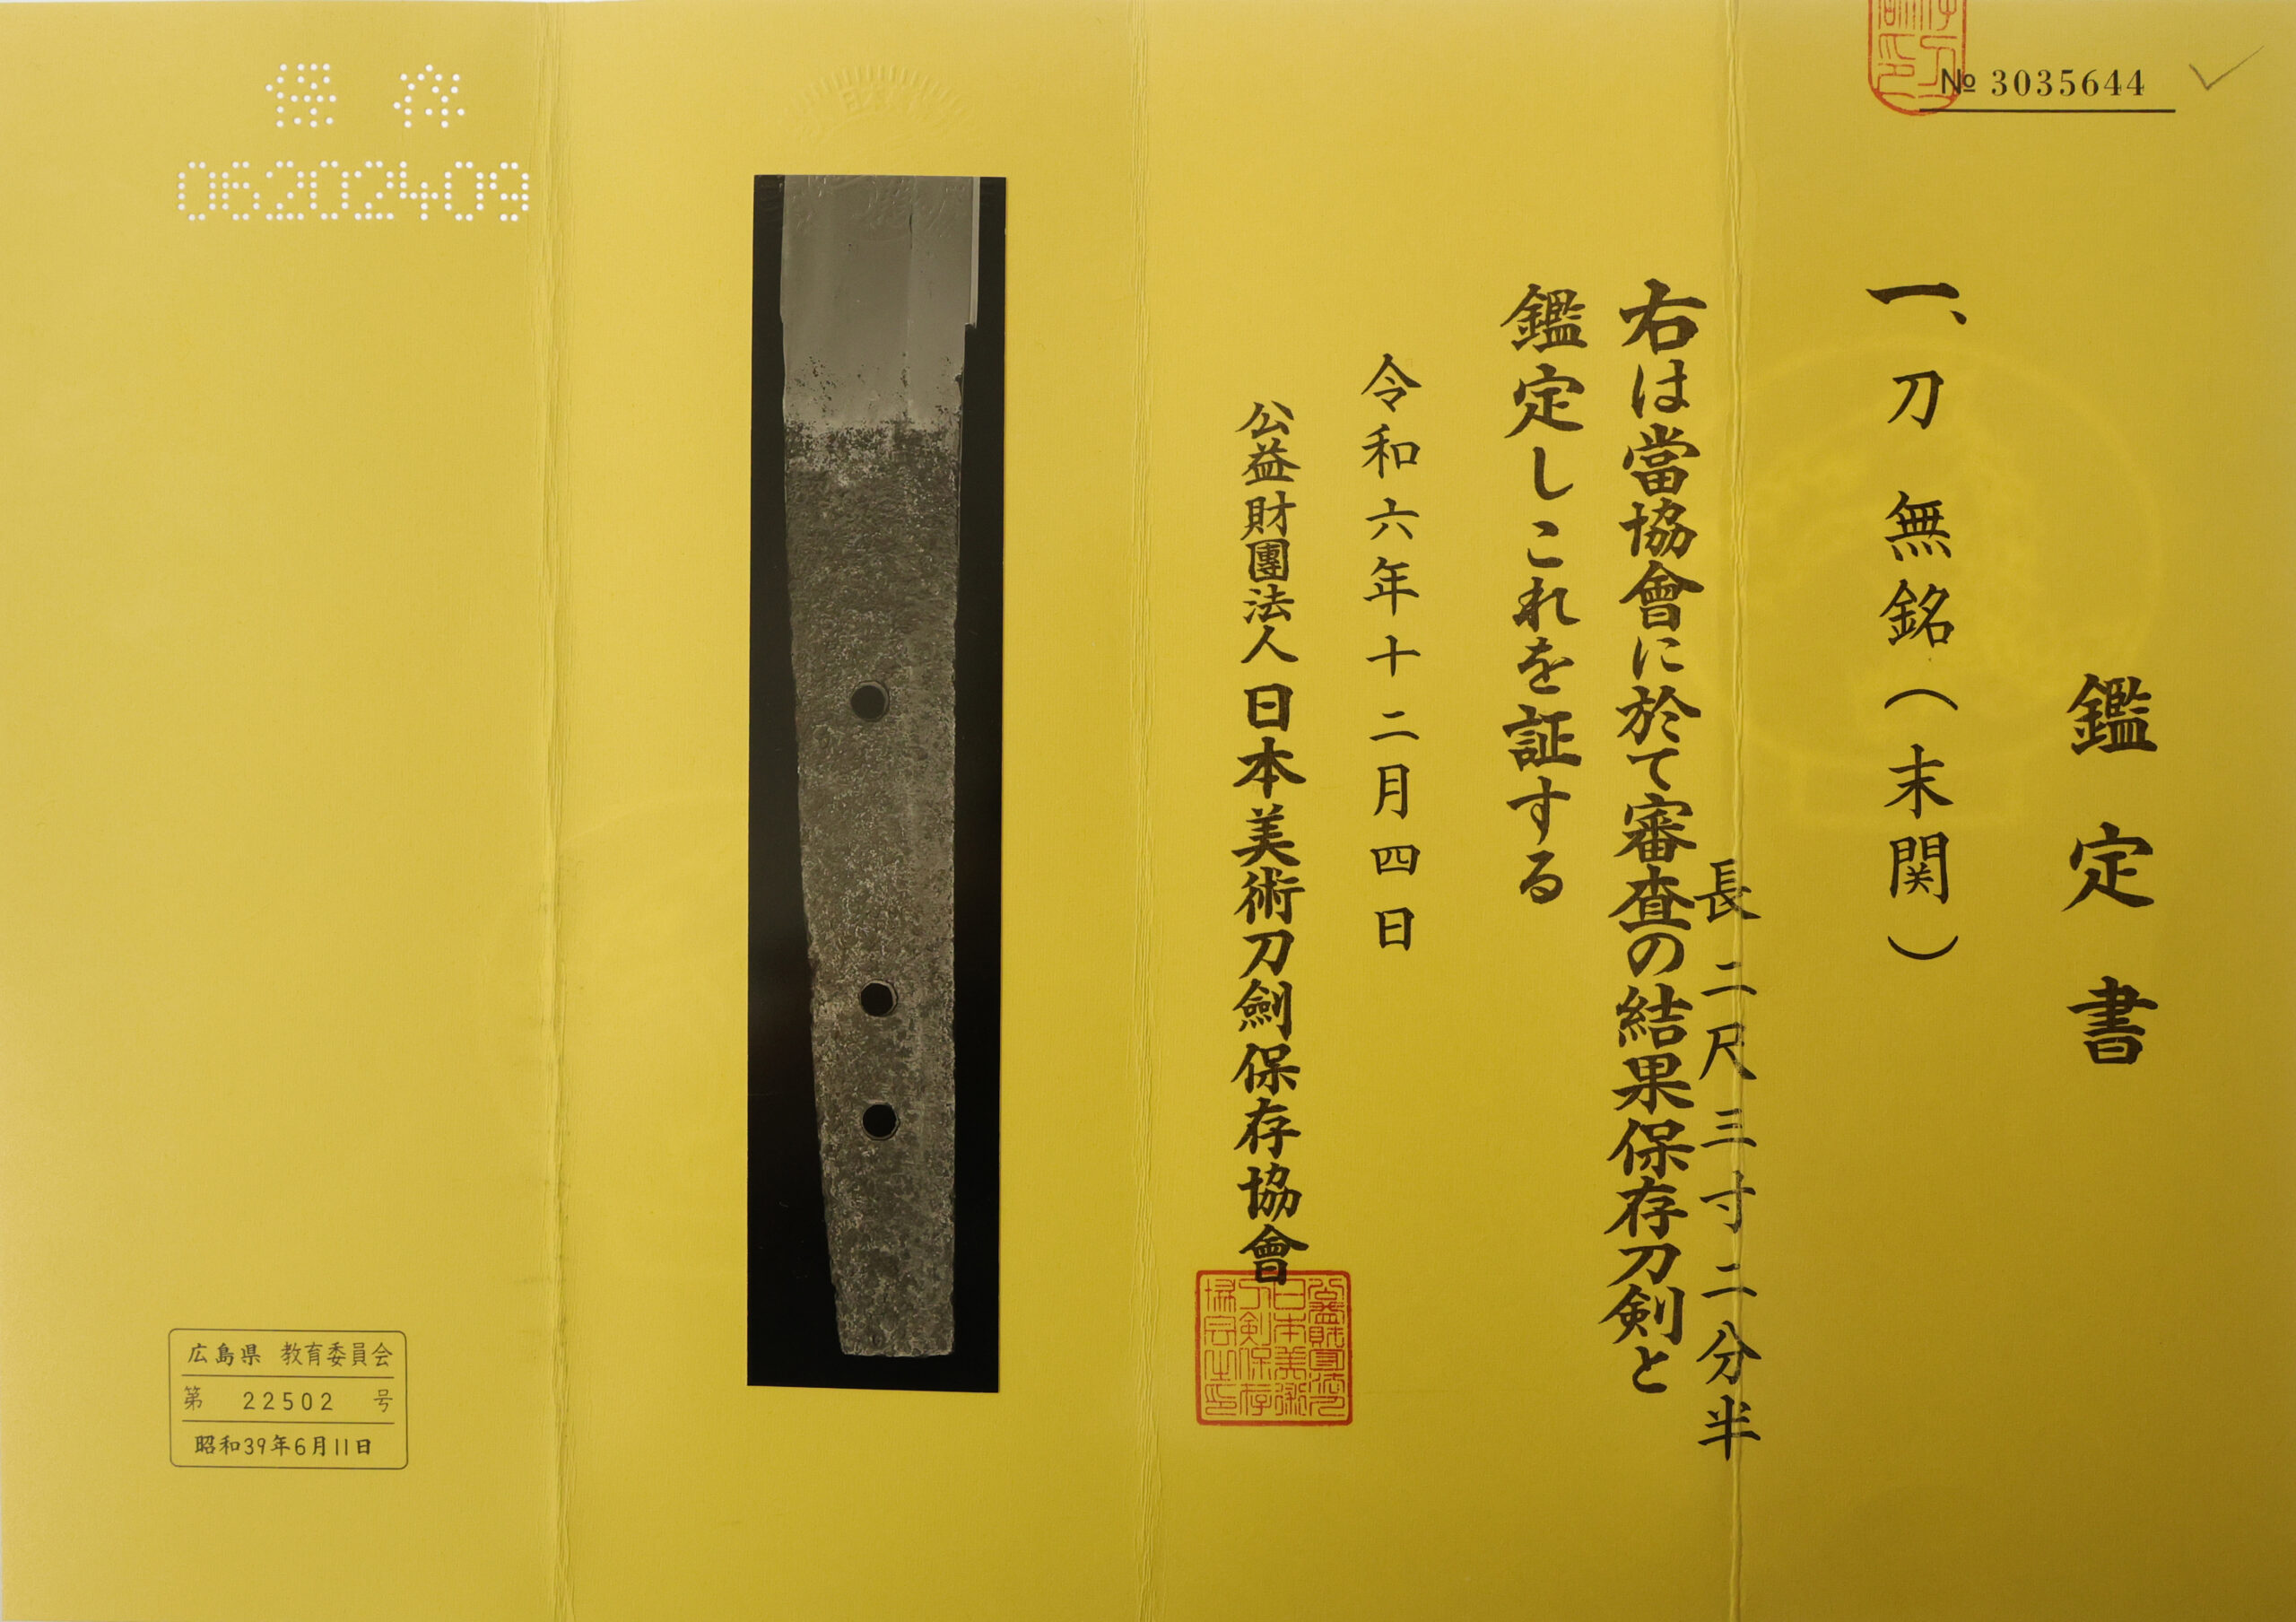 № 3035644
鑑定書
一、刀 無銘(末関)
長二尺三寸二分半
右は當協會に於て審査の結果保存刀剣と
鑑定しこれを証する
令和六年十二月四日
公益財團法人日本美術刀劍保存協會
保存
06202409
広島県 教育委員会
第 22502 号
昭和39年6月11日